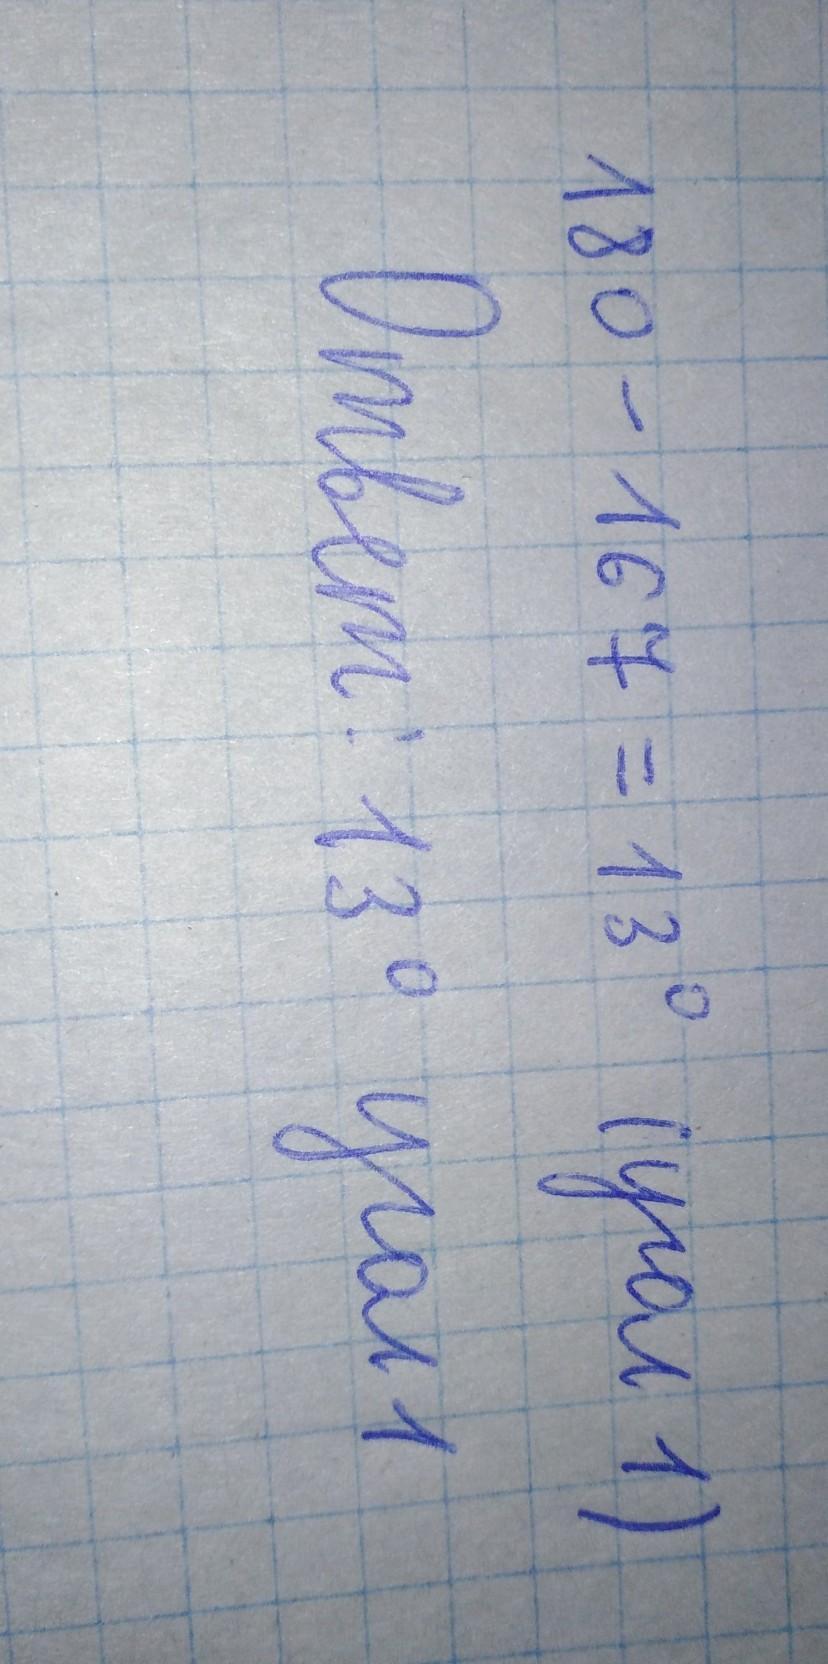 180 - 167 = 13° (угол 1)
Ответ: 13° угол 1